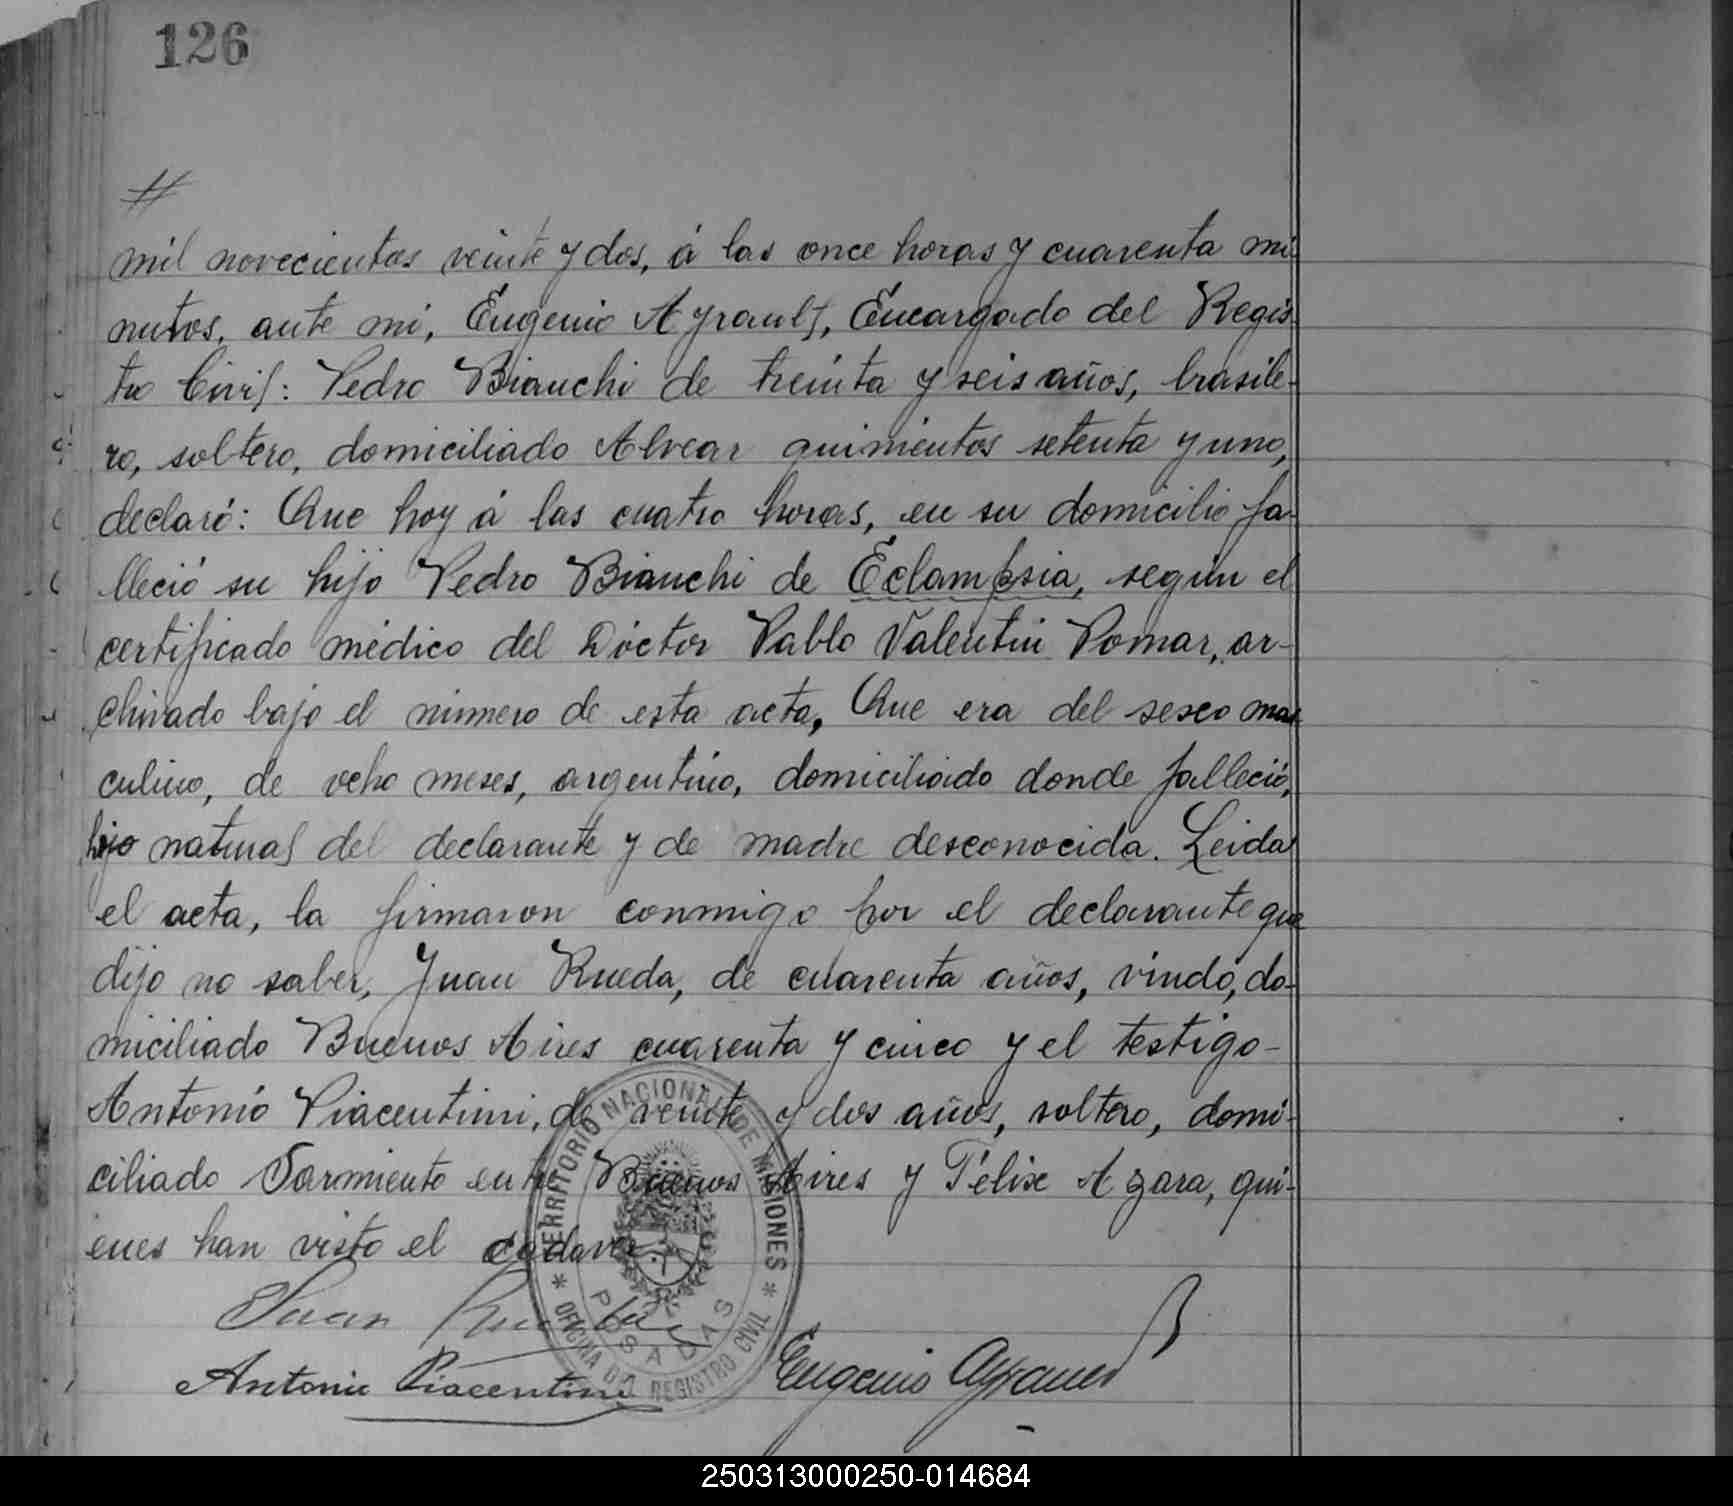 126
#
mil novecientos veinte y dos, á las once horas y cuarenta mi
nutos, ante mi, Eugenio Ayrault, Encargado del Regis
tro Civil: Pedro Bianchi de treinta y seis años, brasile-
ro, soltero, domiciliado Alvear quinientos setenta y uno,
declaró: Que hoy á las cuatro horas, en su domicilio fa-
lleció su hijo Pedro Bianchi de Eclampsia, según el
certificado médico del Dóctor Pablo Valentin Pomar, ar-
chivado bajo el número de esta acta, Que era del sexo mas
culino, de ocho meses, argentino, domiciliado donde falleció,
hijo natural del declarante y de madre desconocida. Leida
el acta, la firmaron conmigo por el declarante que
dijo no saber, Juan Rueda, de cuarenta años, viudo, do-
miciliado Buenos Aires cuarenta y cinco y el testigo-
Antonio Piacentini, de veinte y dos años, soltero, domi-
ciliado Sarmiento entre Buenos Aires y Félix Azara, qui-
enes han visto el cadaver
Juan Rueda
Antonio Piacentini
Eugenio Ayrault
TERRITORIO NACIONAL DE MISIONES
* OFICINA DEL REGISTRO CIVIL *
POSADAS
250313000250-014684